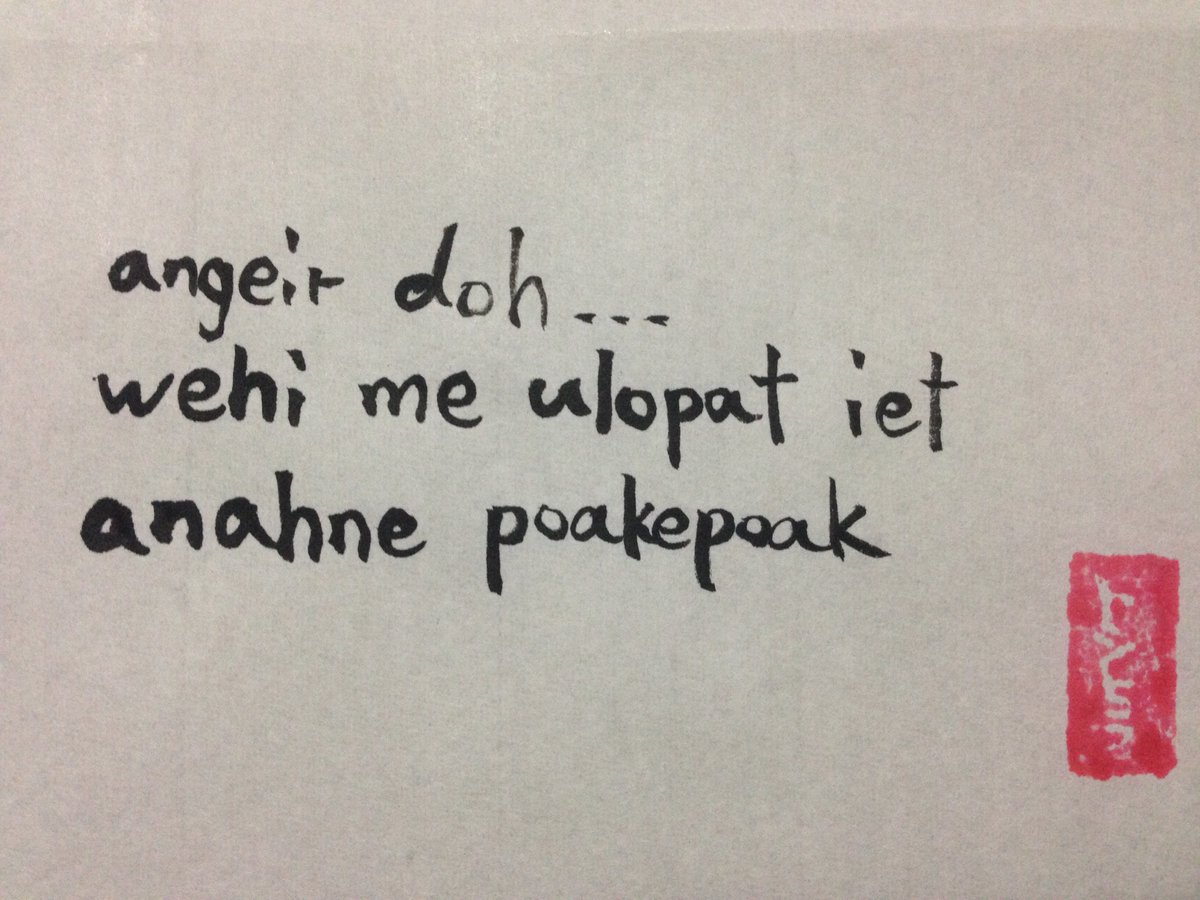 angeir doh...
wehi me ulopat iet
anahne poakepoak